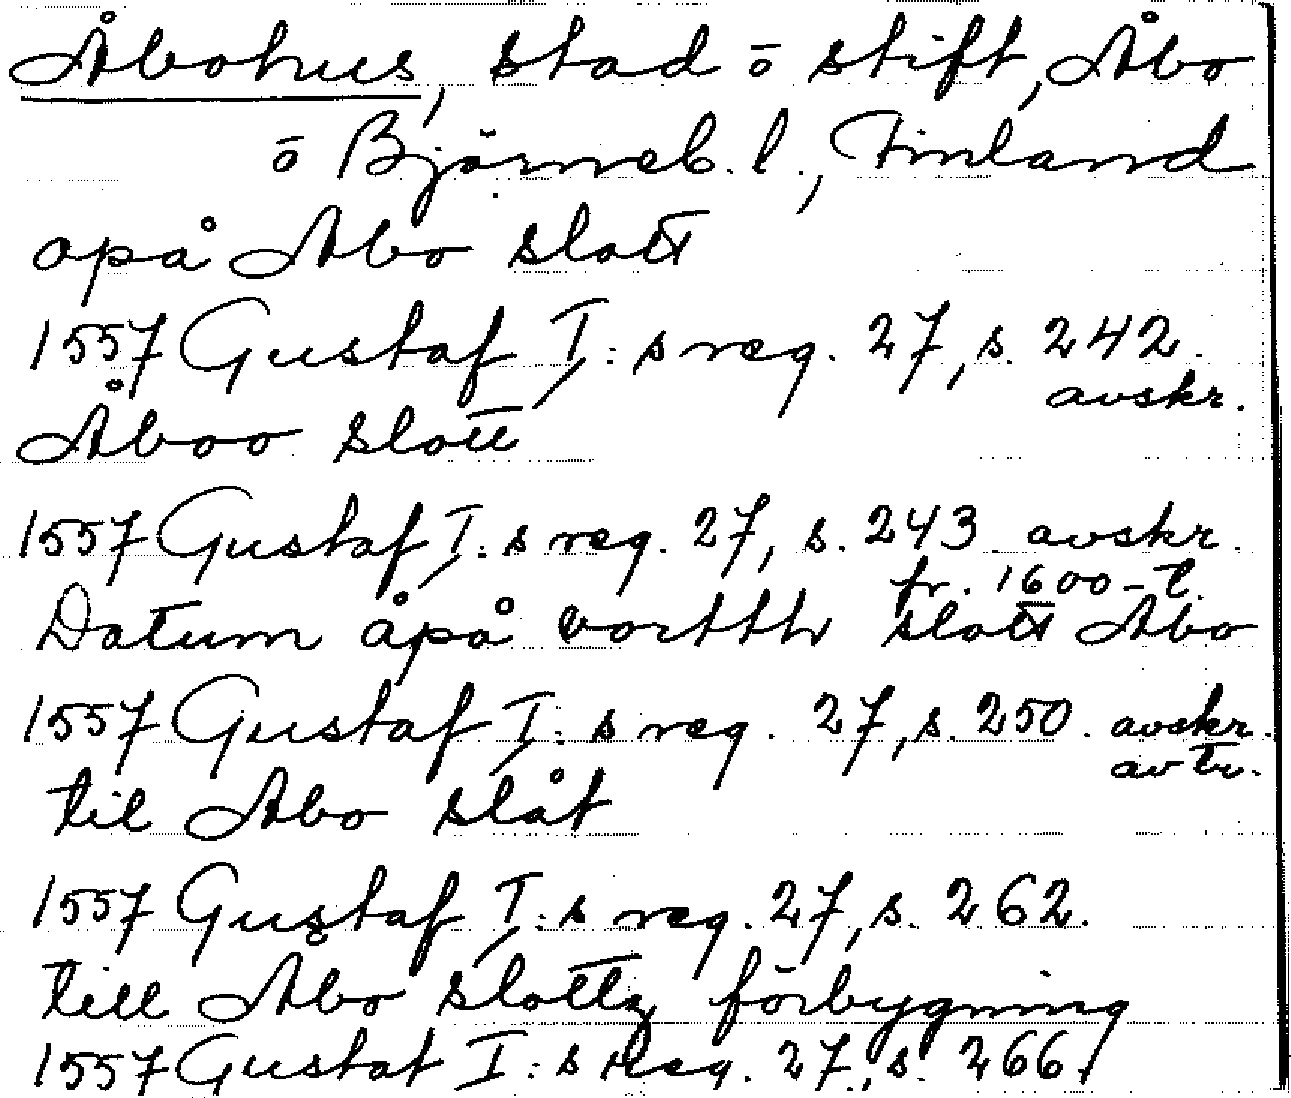 Åbohus, stad ō stift, Åbo
ō Björneb. l., Finland
opå Åbo slott
1557 Gustaf I:s reg. 27, s. 242.
avskr.
Åboo slott
1557 Gustaf I:s reg. 27, s. 243 avskr.
fr. 1600-t.
Datum åpå vortth slott Åbo
1557 Gustaf I:s reg. 27, s. 250. avskr.
av tr.
til Åbo slåt
1557 Gustaf I:s reg. 27, s. 262.
till Åbo slottz förbygning
1557 Gustaf I:s reg. 27, s. 266.